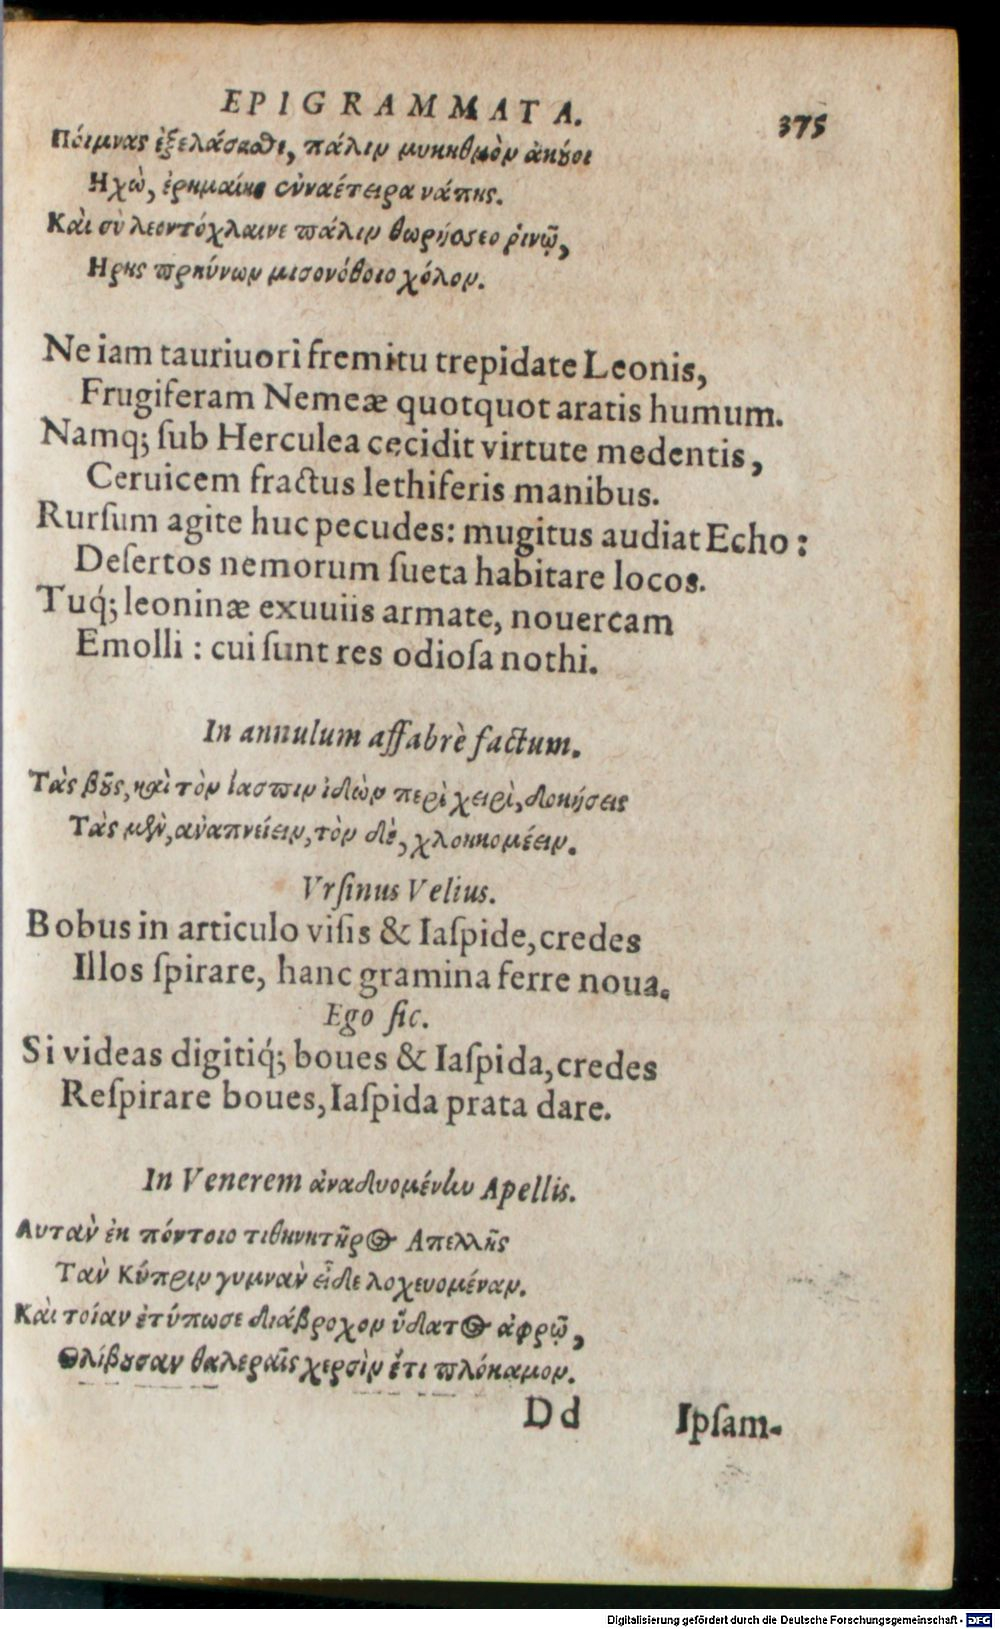 EPIGRAMMATA.
375
Πόιμνας ἐξελάσασθε, πάλιν μυκηθμὸν ἀκούοι
Ηχὼ, ἐρημαίης συναέτειρα νάπης.
Καὶ σὺ λεοντόχλαινε πάλιν θωρήσσεο ῥινῷ,
Ηρης πρηΰνων μισονόθοιο χόλον.
Ne iam tauriuori fremitu trepidate Leonis,
Frugiferam Nemeæ quotquot aratis humum.
Namq; ſub Herculea cecidit virtute medentis,
Ceruicem fractus lethiferis manibus.
Rurſum agite huc pecudes: mugitus audiat Echo:
Deſertos nemorum ſueta habitare locos.
Tuq́; leoninæ exuuiis armate, nouercam
Emolli: cui ſunt res odioſa nothi.
In annulum affabrè factum.
Τὰς βοῦς, καὶ τὸν ἴασπιν ἰδὼν περὶ χειρὶ, δοκήσεις
Τὰς μὲν, ἀναπνείειν, τὸν δὲ, χλοηκομέειν.
Vrſinus Velius.
Bobus in articulo viſis & Iaſpide, credes
Illos ſpirare, hanc gramina ferre noua.
Ego ſic.
Si videas digitiq́; boues & Iaſpida, credes
Reſpirare boues, Iaſpida prata dare.
In Venerem ἀναδυομένην Apellis.
Αυτὰν ἐκ πόντοιο τιθηνητῆρος Απελλῆς
Τὰν Κύπριν γυμνὰν εἶδε λοχευομέναν.
Καὶ τοίαν ἐτύπωσε διάβροχον ὕδατος ἀφρῷ,
Θλίβουσαν θαλεραῖς χερσὶν ἔτι πλόκαμον.
Dd
Ipſam-
Digitalisierung gefördert durch die Deutsche Forschungsgemeinschaft - DFG